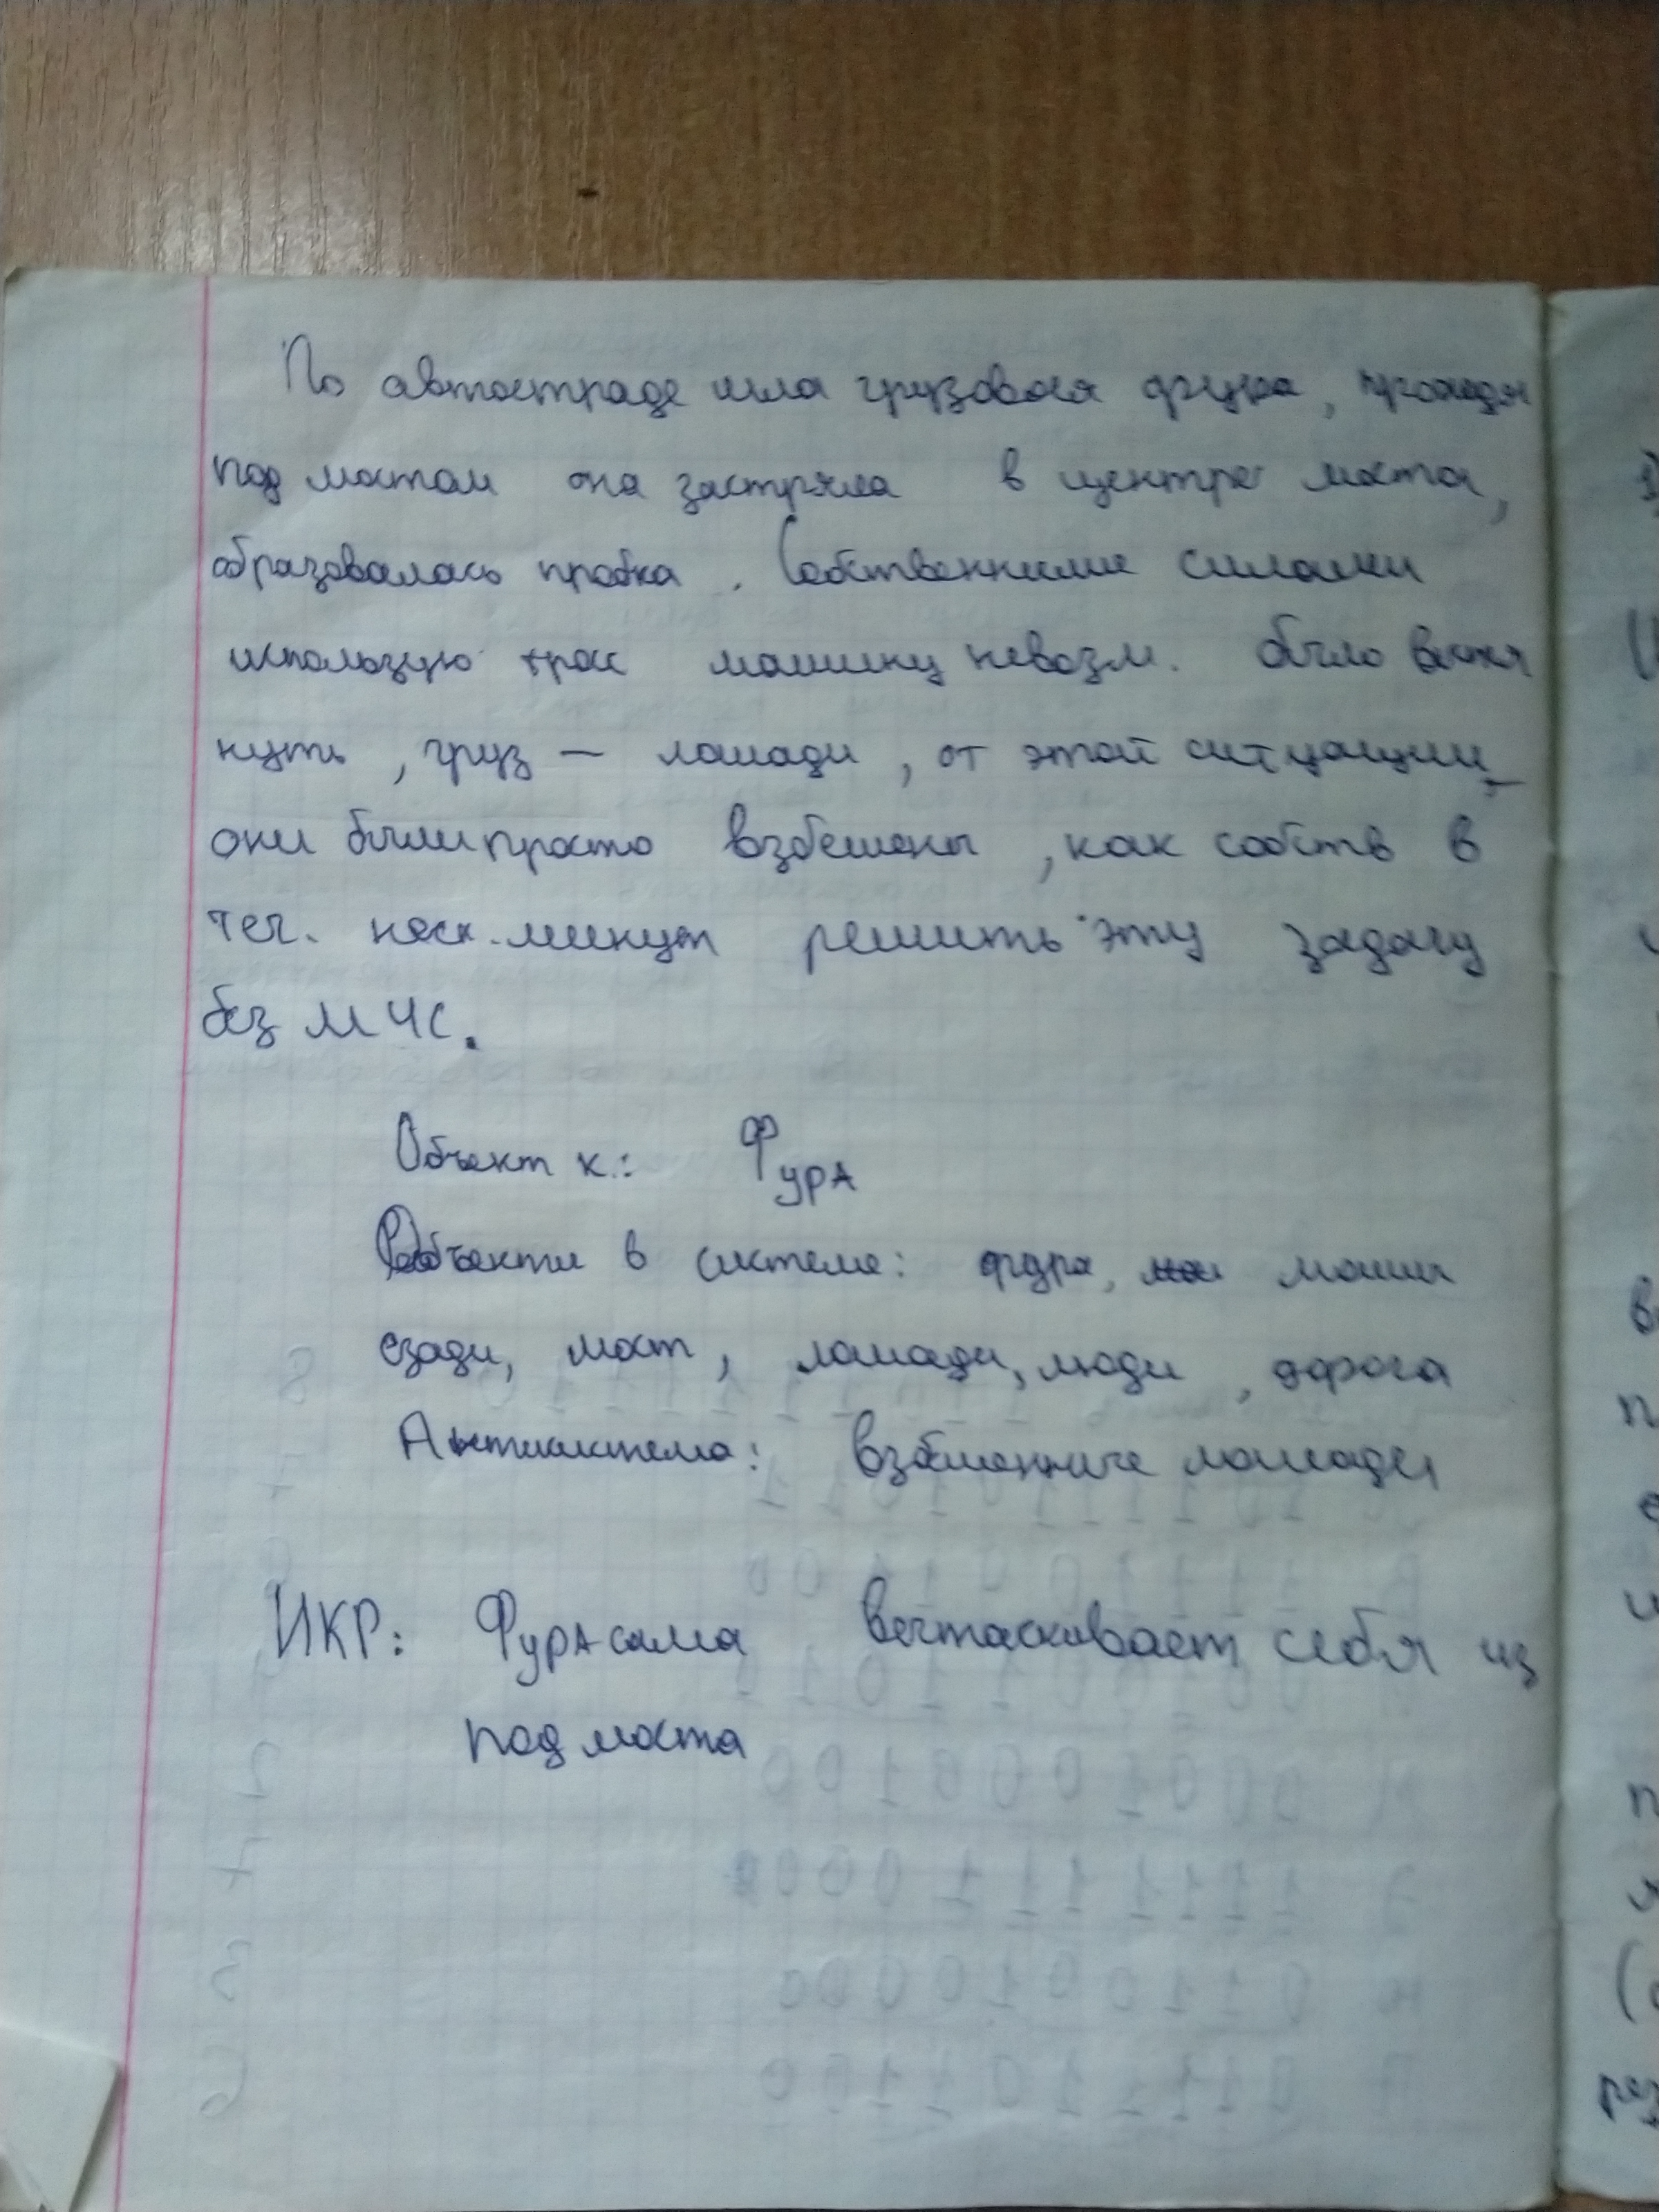 По автостраде шла грузовая фура, проходя
под мостом она застряла в центре моста,
образовалась пробка. Собственными силами
использую трос машину невозм. было вытя
нуть, груз — лошади, от этой ситуации
они были просто взбешены, как собств в
теч. неск. минут решить эту задачу
без МЧС.
Объект к.: Фура
Объекты в системе: фура, машины
сзади, мост, лошади, люди, дорога
Антисистема: взбешенные лошади
ИКР: Фура сама вытаскивает себя из
под моста